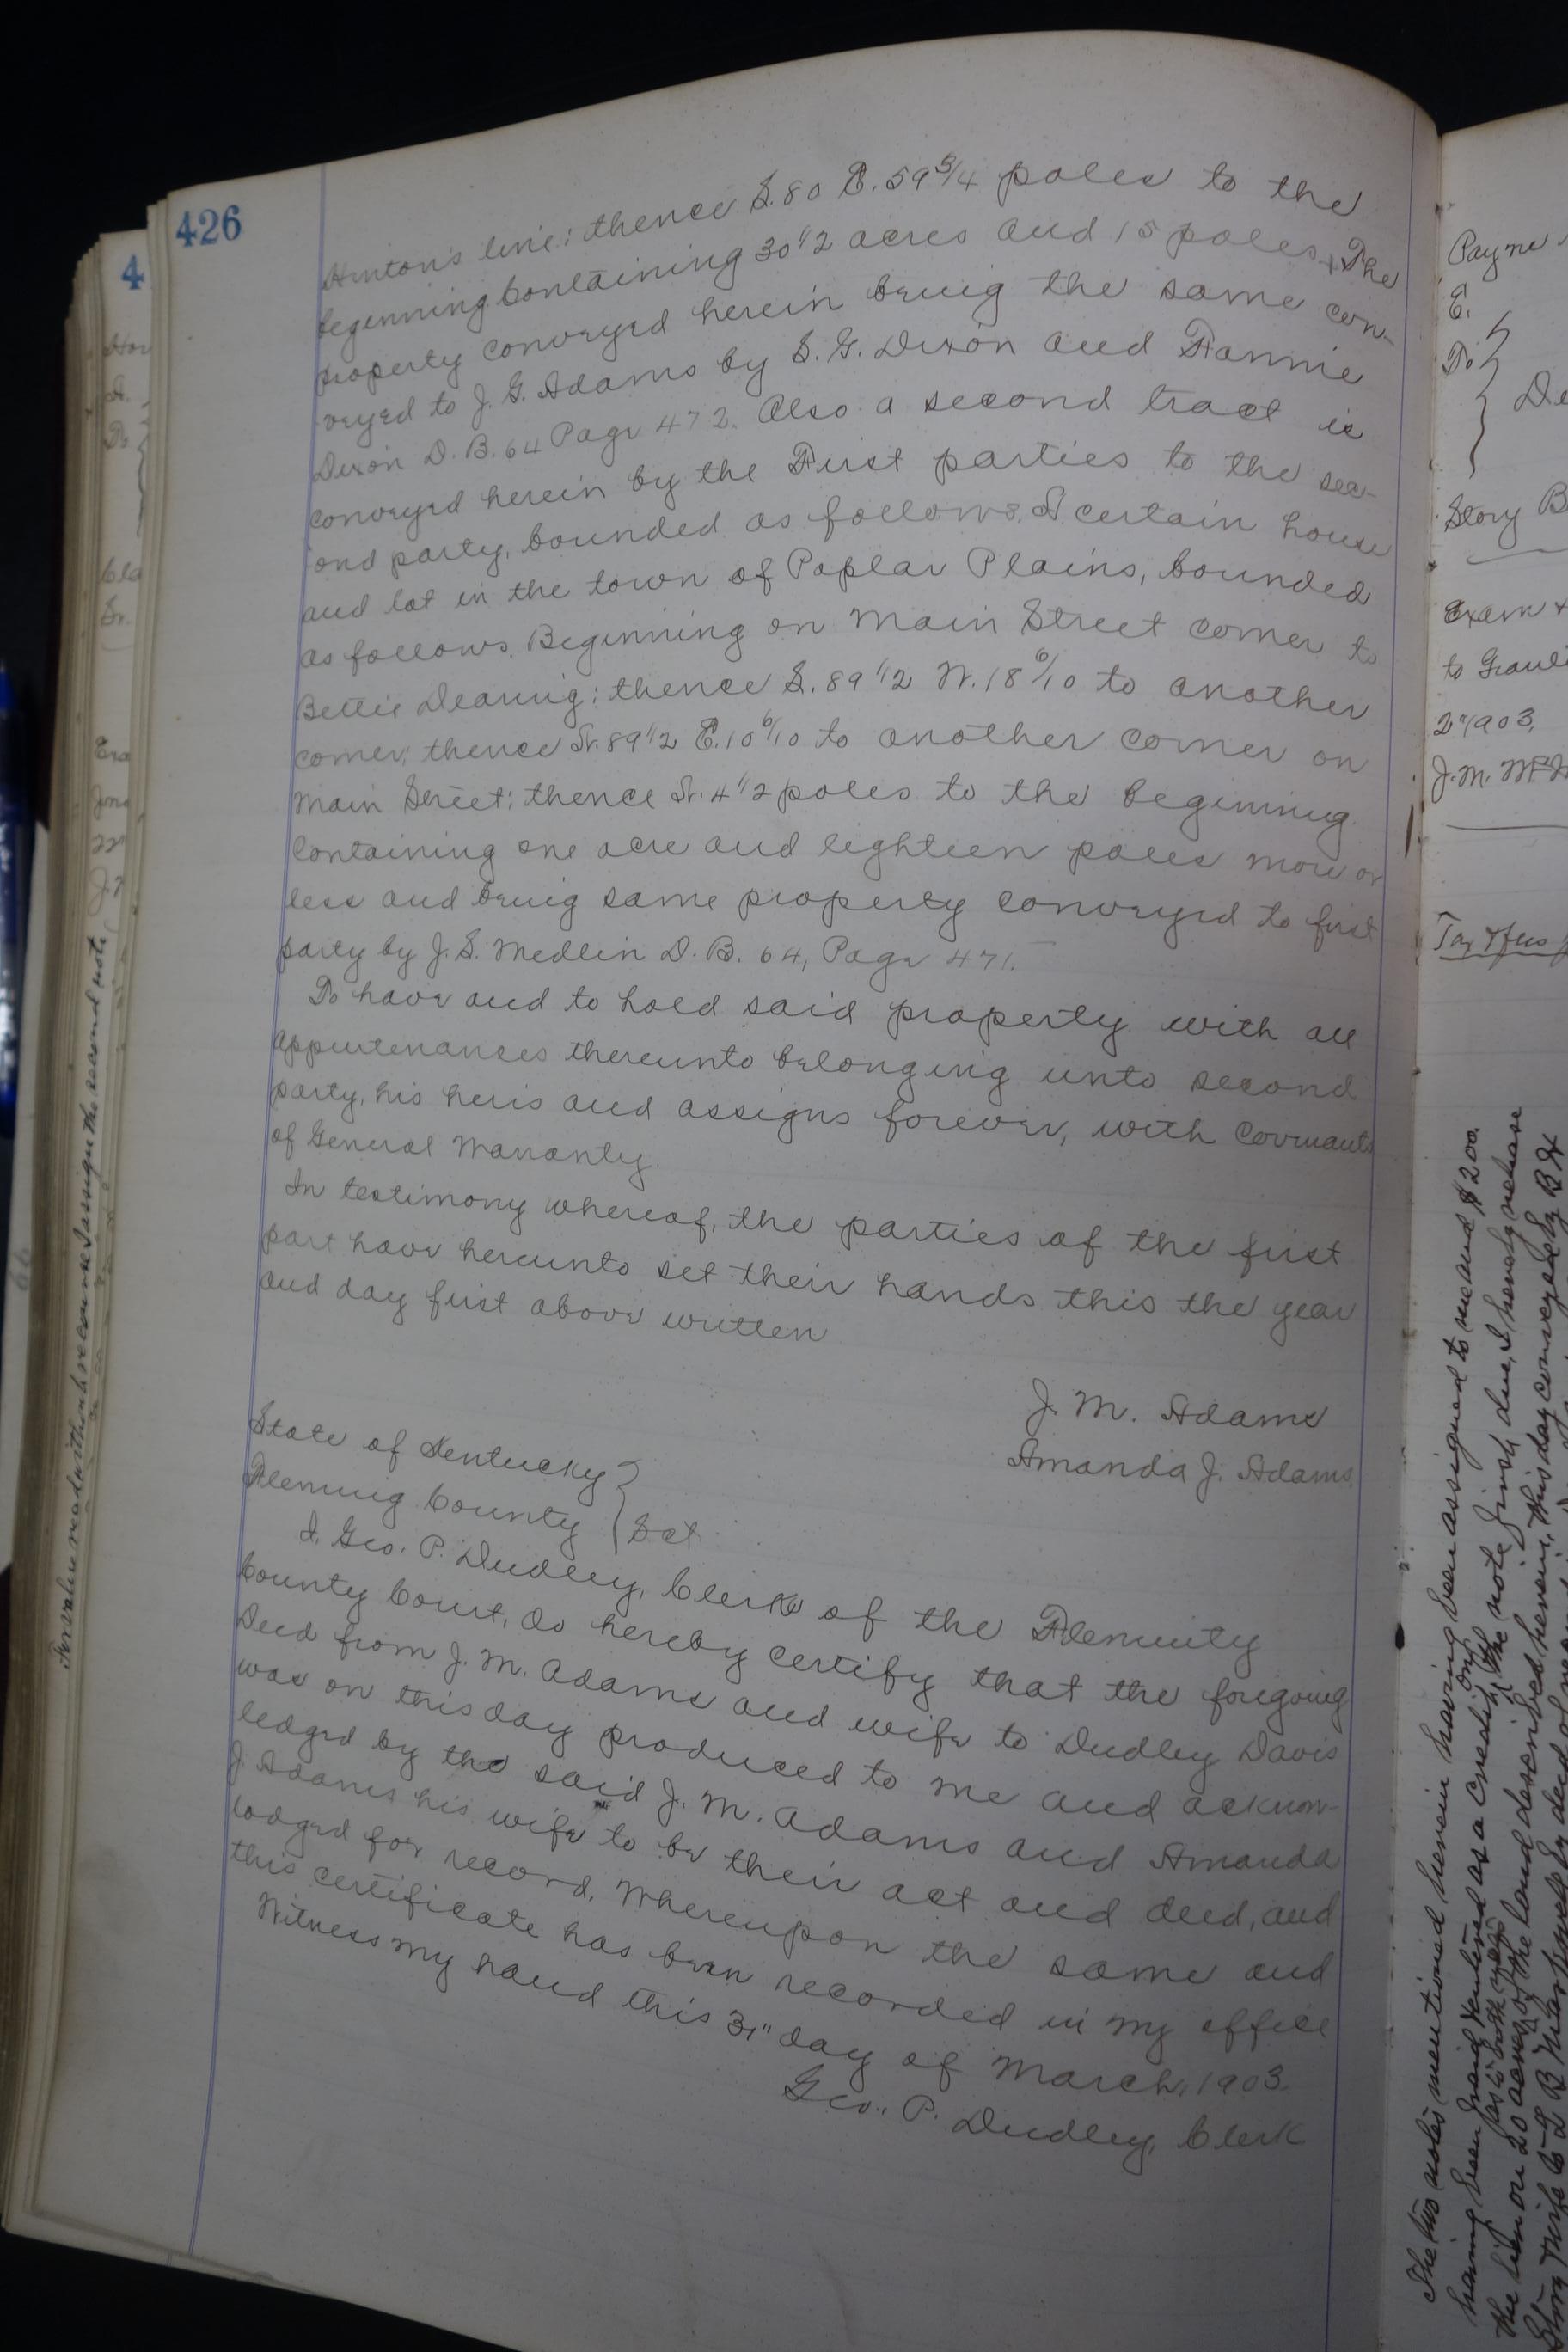 426
Hinton's line; thence S. 80 E. 59 3/4 poles to the
beginning containing 30 1/2 acres and 15 poles. The
property conveyed herein being the same con-
veyed to J. G. Adams by S. G. Dixon and Fannie
Dixon D. B. 64 Page 472. Also a second tract is
conveyed herein by the First parties to the sec-
ond party, bounded as follows. A certain house
and lot in the town of Poplar Plains, bounded
as follows. Beginning on Main Street corner to
Bettie Dearing; thence S. 89 1/2 W. 18 6/10 to another
corner; thence N. 89 1/2 E. 10 6/10 to another corner on
Main Street; thence N. 4 1/2 poles to the beginning
containing one acre and eighteen poles more or
less and being same property conveyed to first
party by J. S. Medlin D. B. 64, Page 471.
To have and to hold said property with all
appurtenances thereunto belonging unto second
party, his heirs and assigns forever, with Covenants
of General Warranty.
In testimony whereof, the parties of the first
part have hereunto set their hands this the year
and day first above written
J. M. Adams
Amanda J. Adams
State of Kentucky
Fleming County } Sct
I, Geo. P. Dudley, Clerk of the Flemuity
County Court, do hereby certify that the foregoing
Deed from J. M. Adams and wife to Dudley Davis
was on this day produced to me and acknow-
ledged by the said J. M. Adams and Amanda
J. Adams his wife to be their act and deed, and
lodged for record. Whereupon the same and
this certificate has been recorded in my office
Witness my hand this 31" day of March, 1903.
Geo. P. Dudley, Clerk
For value rec'd without recourse I assign the second note
4
Payne
E.
To }
Story B
Exam +
to
2" 1903.
J. M.
The two notes mentioned herein having been assigned to me and $200.
having been paid on as a credit on the note first due, I hereby release
the lien on 20 acres of the land described herein, this day conveyed by B H